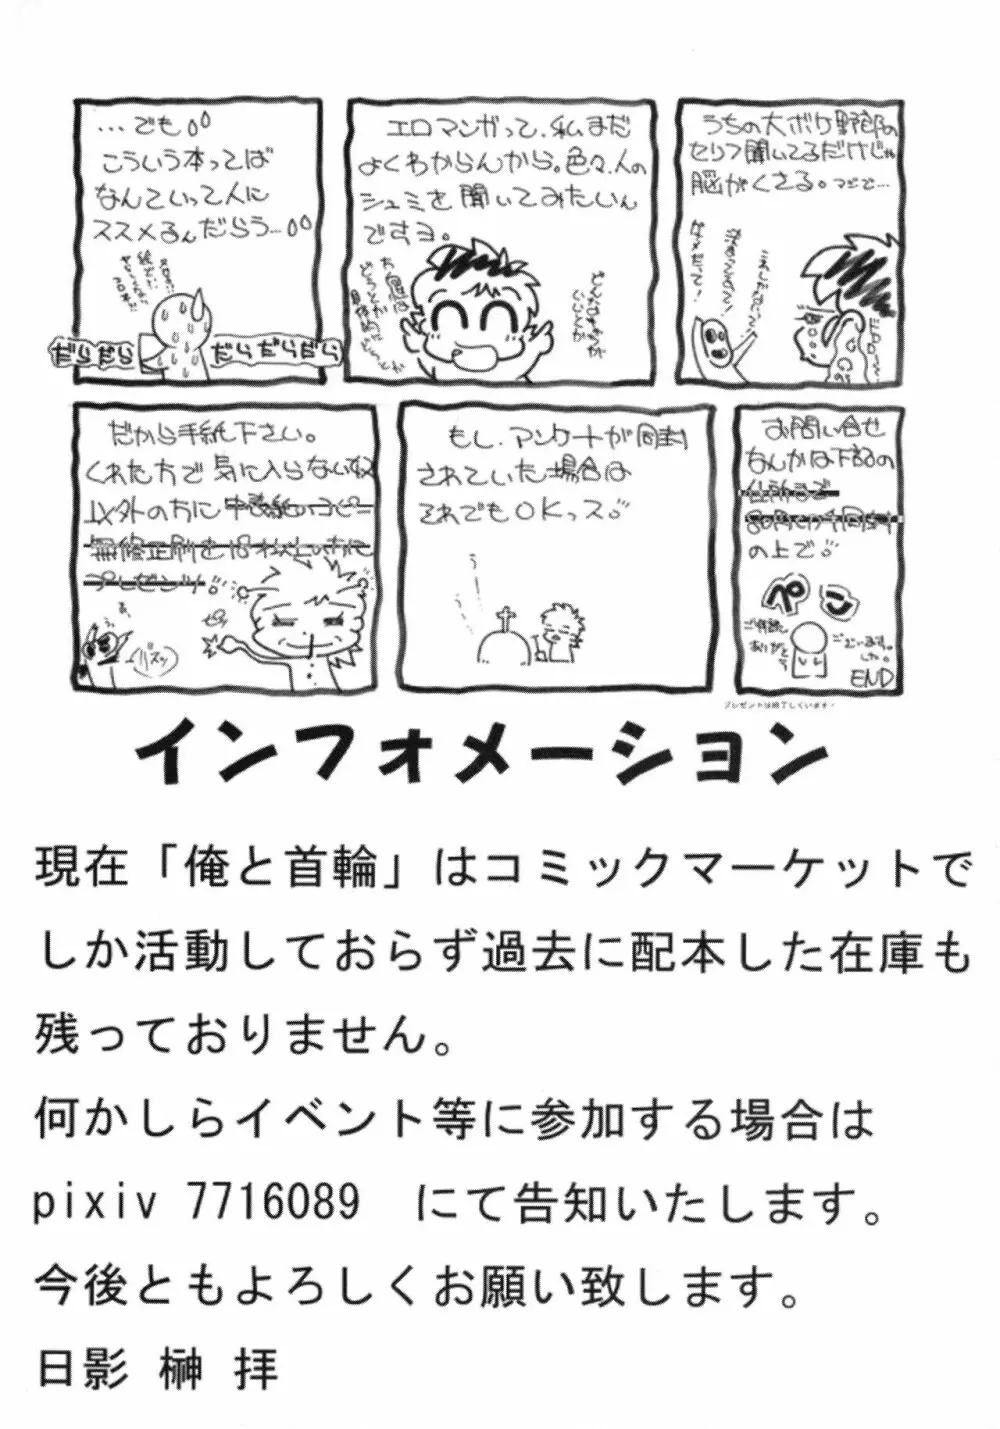 うちの大ボケ野郎の
セリフ聞いてるだけじゃ
脳がくさる。マジで…
エロマンガって、私まだ
よくわからんから。色々、人の
シュミを聞いてみたいん
ですヨ。
…でも
こういう本ってば
なんていって人に
ススメるんだろう…
だらだら
だらだらだら
お問い合せ
なんかは下記の
の上で
ペコ
ございます。
した。
END
プレゼントは終了しています。
もし、アンケートが同封
されていた場合は
それでもOKっス
だから手紙下さい。
くれた方で気に入らない奴
以外の方に
インフォメーション
現在「俺と首輪」はコミックマーケットで
しか活動しておらず過去に配本した在庫も
残っておりません。
何かしらイベント等に参加する場合は
pixiv 7716089　にて告知いたします。
今後ともよろしくお願い致します。
日影 榊 拝